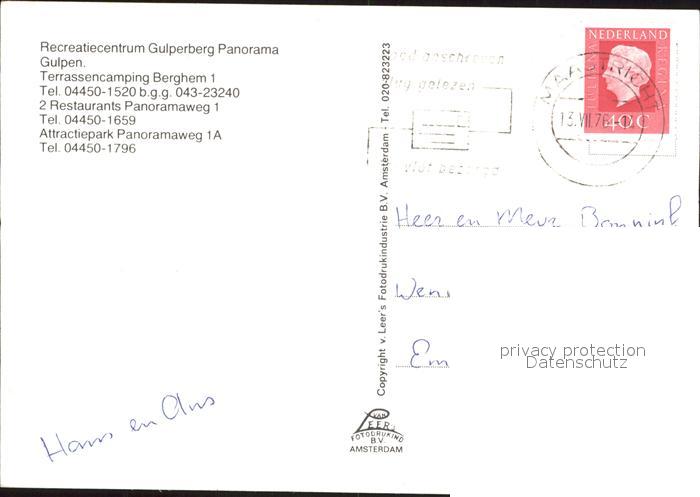 Recreatiecentrum Gulperberg Panorama
Gulpen.
Terrassencamping Berghem 1
Tel. 04450-1520 b.g.g. 043-23240
2 Restaurants Panoramaweg 1
Tel. 04450-1659
Attractiepark Panoramaweg 1A
Tel. 04450-1796
Hans en Ans
Copyright v. Leer's Fotodrukindustrie B.V. Amsterdam - Tel. 020-823223
VAN
LEER'S
FOTODRUKIND
B.V.
AMSTERDAM
goed geschreven
vlug gelezen
vlot bezorgd
MAASTRICHT
13.VII.76
NEDERLAND
JULIANA REGINA
40c
Heer en Mevr
Em
privacy protection
Datenschutz